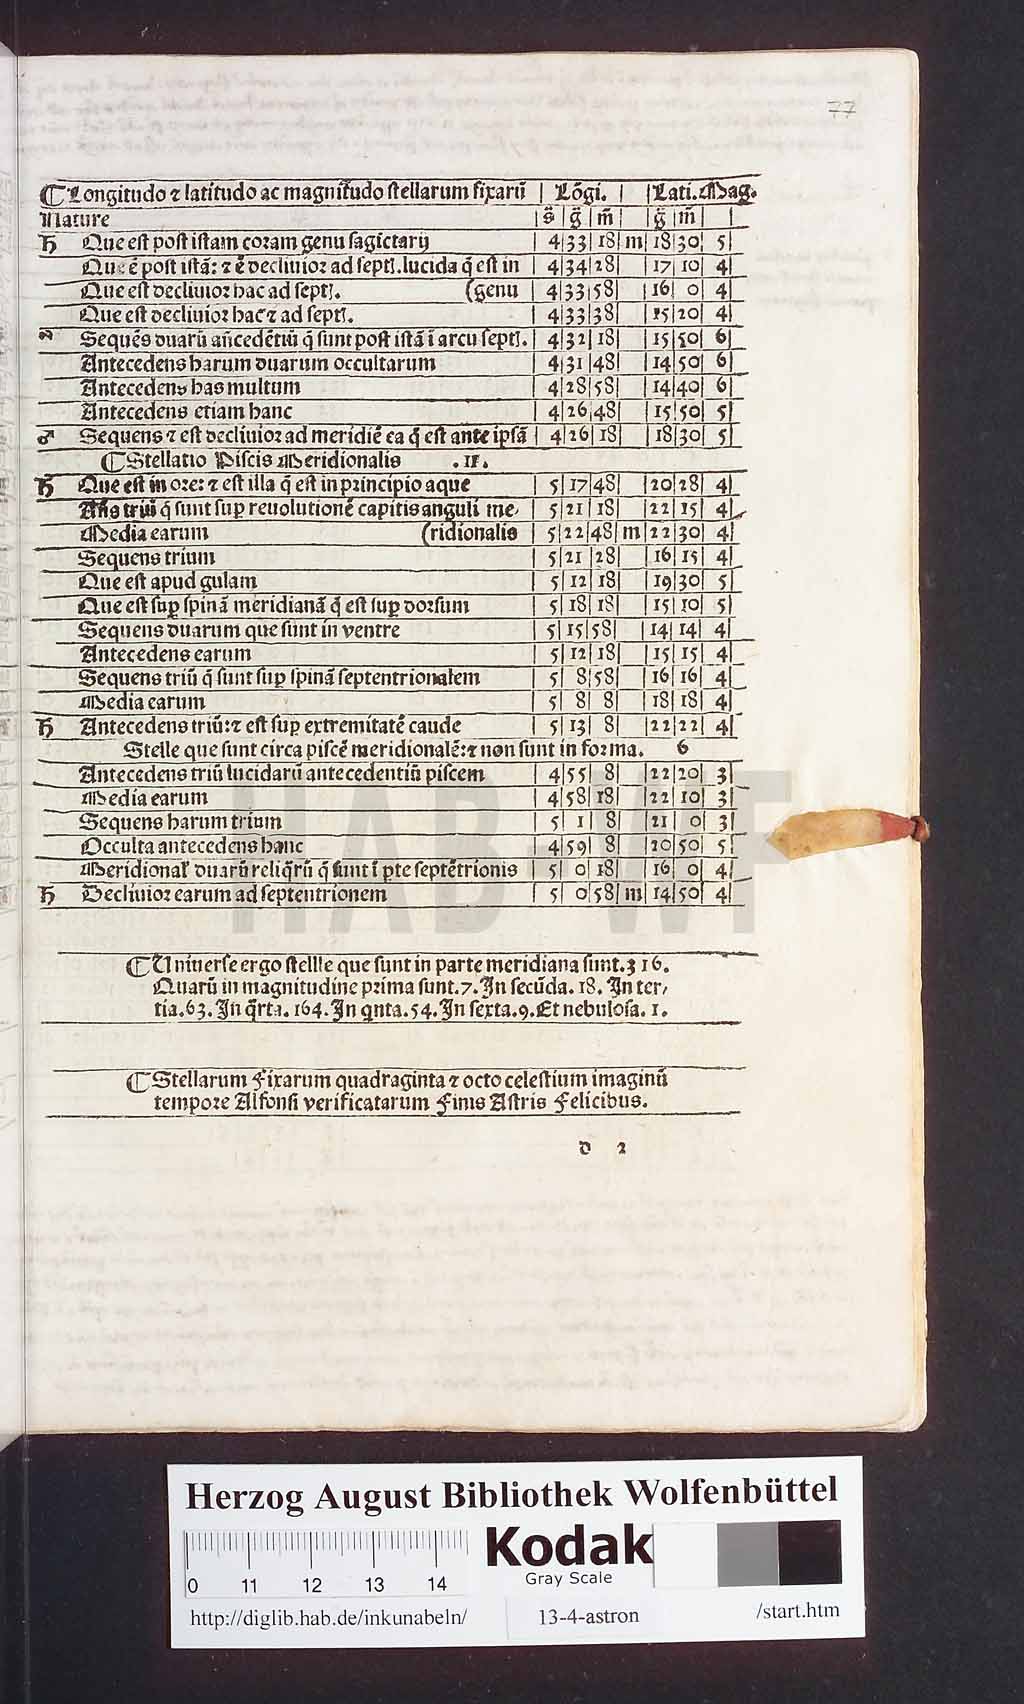 77
Longitudo ⁊ latitudo ac magnitudo stellarum fixarū | Lōgi. | | Lati. Mag.
Nature | s̄ | ḡ | m̄ | | ḡ | m̄ | |
♄ Que est post istam coram genu sagictarij | 4 | 33 | 18 | m | 18 | 30 | 5
Que ē post istā: ⁊ ē decliuior ad septl. lucida q̄ est in | 4 | 34 | 28 | | 17 | 10 | 4
Que est decliuior hac ad septl. (genu | 4 | 33 | 58 | | 16 | 0 | 4
Que est decliuior hac ⁊ ad septl. | 4 | 33 | 38 | | 15 | 20 | 4
Sequēs duarū añcedētiū q̄ sunt post istā ī arcu septl. | 4 | 32 | 18 | | 15 | 50 | 6
Antecedens harum duarum occultarum | 4 | 31 | 48 | | 14 | 50 | 6
Antecedens has multum | 4 | 28 | 58 | | 14 | 40 | 6
Antecedens etiam hanc | 4 | 26 | 48 | | 15 | 50 | 5
♂ Sequens ⁊ est decliuior ad meridiē ea q̄ est ante ipsā | 4 | 26 | 18 | | 18 | 30 | 5
Stellatio Piscis Meridionalis .11.
♄ Que est in ore: ⁊ est illa q̄ est in principio aque | 5 | 17 | 48 | | 20 | 28 | 4
Añs triū q̄ sunt sup reuolutionē capitis anguli me- | 5 | 21 | 18 | | 22 | 15 | 4
Media earum (ridionalis | 5 | 22 | 48 | m | 22 | 30 | 4
Sequens trium | 5 | 21 | 28 | | 16 | 15 | 4
Que est apud gulam | 5 | 12 | 18 | | 19 | 30 | 5
Que est sup spinā meridianā q̄ est sup dorsum | 5 | 18 | 18 | | 15 | 10 | 5
Sequens duarum que sunt in ventre | 5 | 15 | 58 | | 14 | 14 | 4
Antecedens earum | 5 | 12 | 18 | | 15 | 15 | 4
Sequens triū q̄ sunt sup spinā septentrionalem | 5 | 8 | 58 | | 16 | 16 | 4
Media earum | 5 | 8 | 8 | | 18 | 18 | 4
♄ Antecedens triū: ⁊ est sup extremitatē caude | 5 | 13 | 8 | | 22 | 22 | 4
Stelle que sunt circa piscē meridionalē: ⁊ non sunt in forma. 6
Antecedens triū lucidarū antecedentiū piscem | 4 | 55 | 8 | | 22 | 20 | 3
Media earum | 4 | 58 | 18 | | 22 | 10 | 3
Sequens harum trium | 5 | 1 | 8 | | 21 | 0 | 3
Occulta antecedens hanc | 4 | 59 | 8 | | 20 | 50 | 5
Meridional' duarū reliq̄rū q̄ sunt ī pte septētrionis | 5 | 0 | 18 | | 16 | 0 | 4
♄ Decliuior earum ad septentrionem | 5 | 0 | 58 | m | 14 | 50 | 4
Uniuerse ergo stellle que sunt in parte meridiana sunt. 316.
Quarū in magnitudine prima sunt. 7. In secūda. 18. In ter-
tia. 63. In q̄rta. 164. In qnta. 54. In sexta. 9. Et nebulosa. 1.
Stellarum Fixarum quadraginta ⁊ octo celestium imaginū
tempore Alfonsi verificatarum Finis Astris Felicibus.
d 2
HAB WF
Herzog August Bibliothek Wolfenbüttel
Kodak
Gray Scale
0 11 12 13 14
http://diglib.hab.de/inkunabeln/ 13-4-astron /start.htm